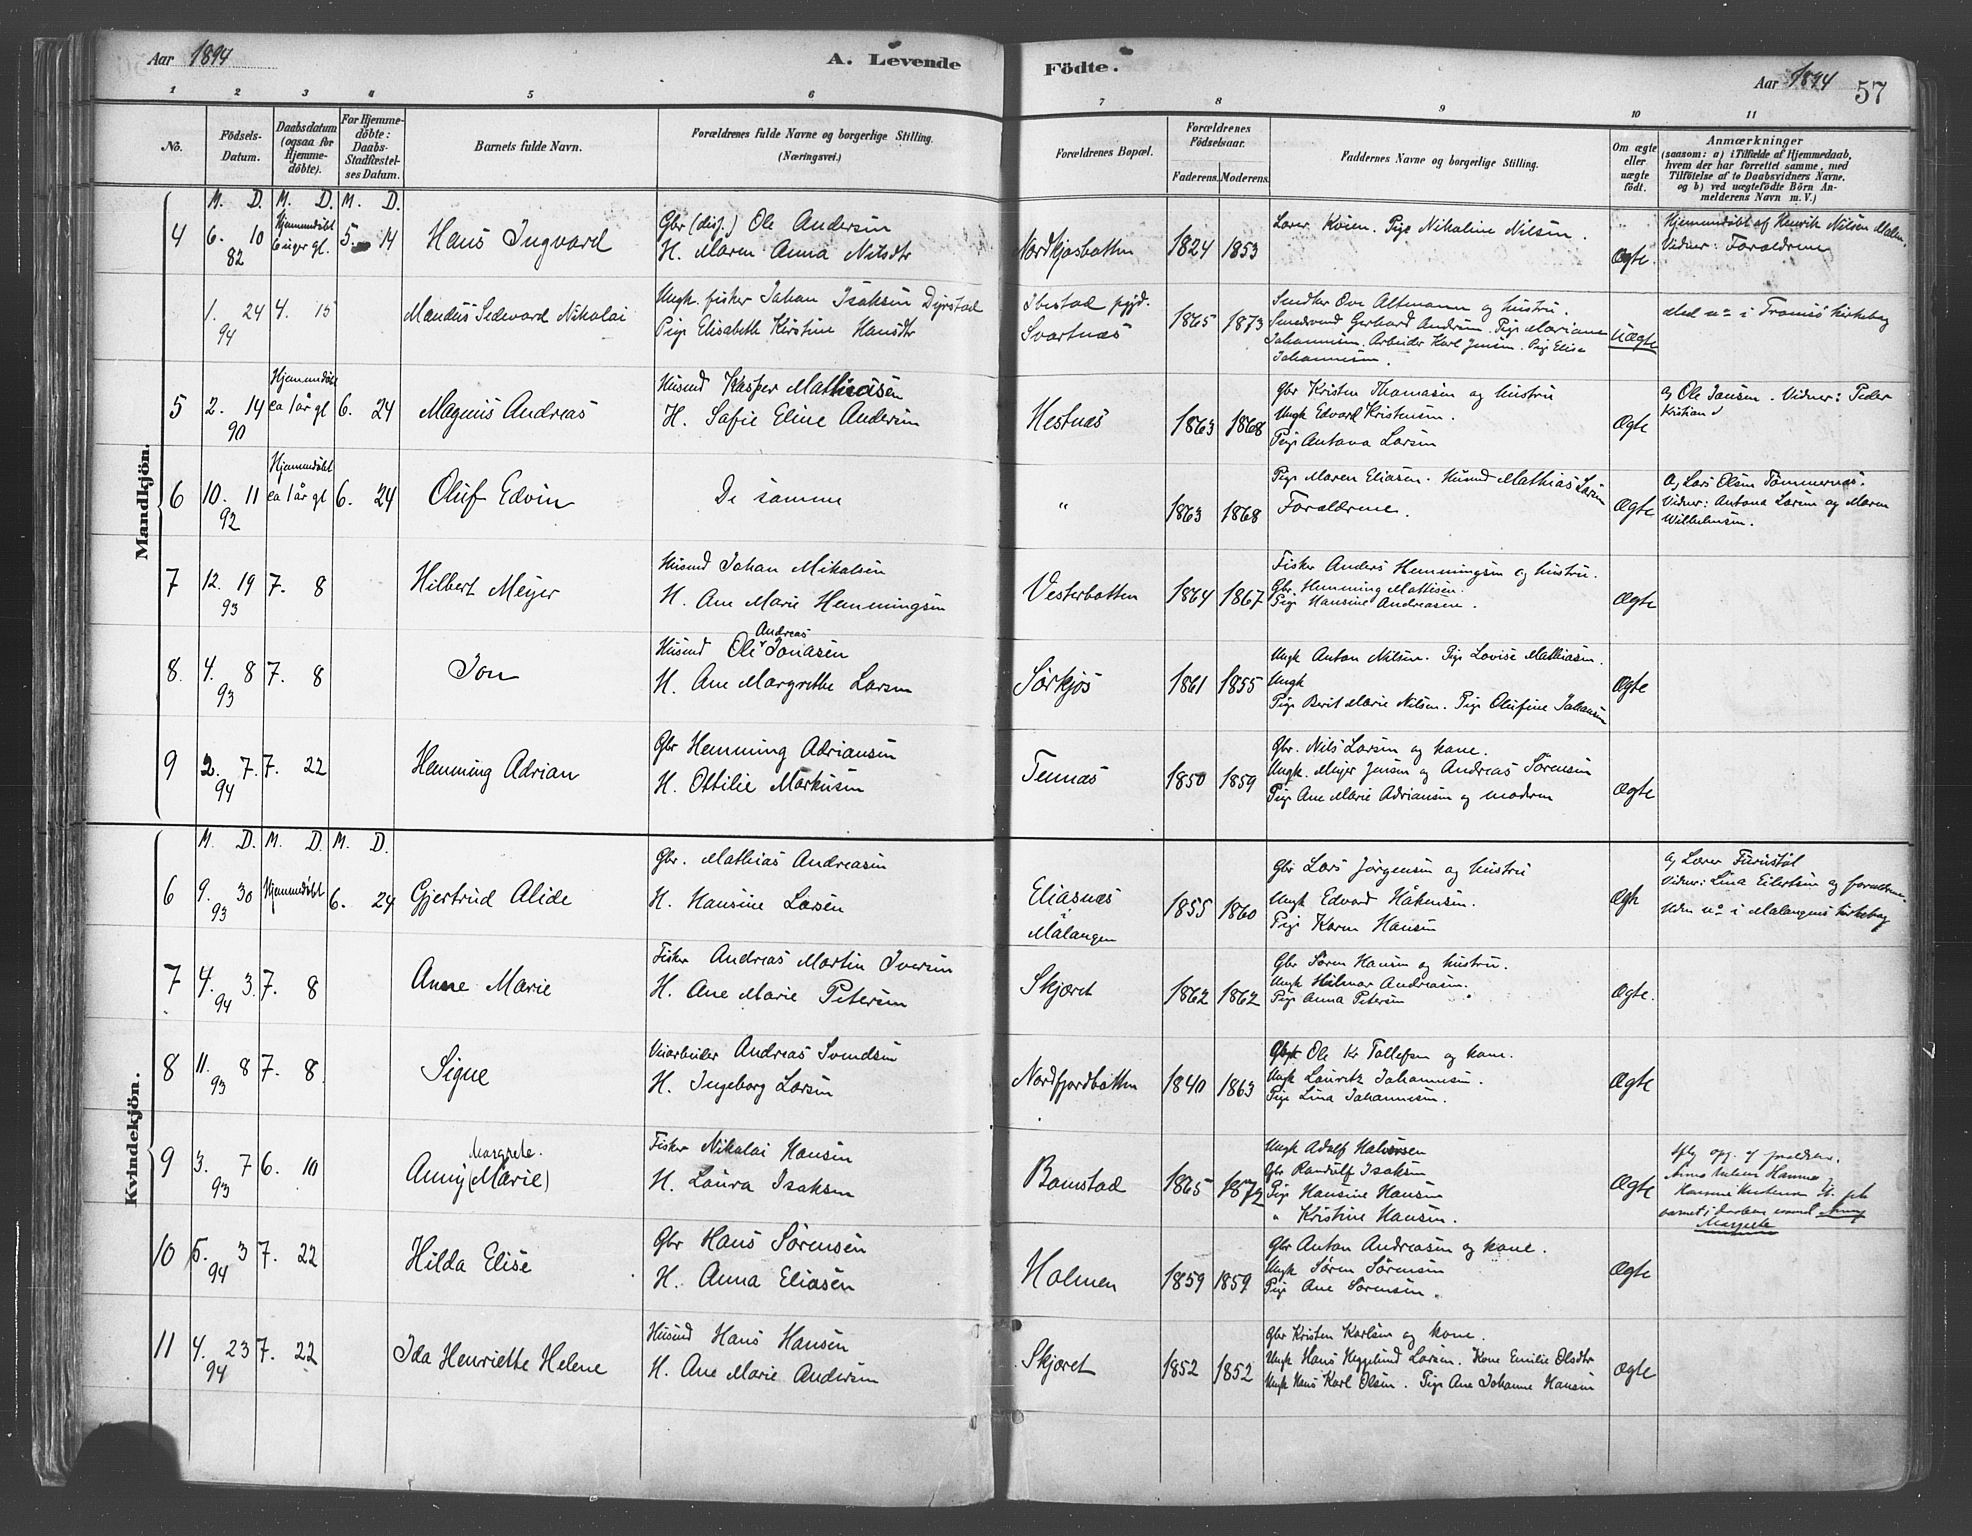 Aar 1894
A. Levende
Födte.
Aar 1894
57
1 2 3 4 5 6 7 8 9 10 11
No.
Födsels-Datum.
Daabsdatum (ogsaa for Hjemmedöbte).
For Hjemmedöbte: Daabs-Stadfæstelses Datum.
Barnets fulde Navn.
Forældrenes fulde Navne og borgerlige Stilling.
(Næringsvei.)
Forældrenes Bopæl.
Forældrenes Födselsaar.
Faderens. Moderens.
Faddernes Navne og borgerlige Stilling.
Om ægte eller uægte födt.
Anmærkninger
(saasom: a) i Tilfælde af Hjemmedaab, hvem der har forrettet samme, med Tilföielse af to Daabsvidners Navne, og b) ved uægtefödte Börn Anmelderens Navn m. V.)
Mandkjön.
M. D. M. D. M. D.
4 6. 10 82 Hjemmedøbt 6 uger gl. 5. 14 Hans Ingvard
Gbr (dis.) Ole Andersen
H. Maren Anna Nilsdtr
Nordkjosbotten 1824 1853
Lærer Kvien. Pige Nikoline Nilsen.
Ægte.
Hjemmedøbt af Henrik Nilsen Malen.
Vidner: Forældrene
1. 24 94 4. 15 Mandus Sedevard Nikolai
Ungk. fisker Johan Isaksen Dyrstad
Pige Elisabeth Kirstine Hansdtr
Ibestad pgjd.
Svartnæs 1865 1873
Smedvend Gerhard Andersen. Pige Mariane
Johannesen. Arbeider Karl Jensen. Pige Elise
Johannesen.
Uægte
Med No i Tromsø kirkebog
5 2. 14 90 Hjemmedøbt ca 1 år gl 6. 24 Magnus Andreas
Husmd Kasper Mathiasen
H. Sofie Eline Andersen
Hestnæs 1863 1868
Gbr Kristen Thomasen og hustru
Ungk Edvard Kristensen.
Pige Antona Larsen
Ægte
Ole Jansen. Vidner: Peder
Kristian
6 10. 11 92 Hjemmedøbt ca 1 år gl 6. 24 Oluf Edvin
De samme
" 1863 1868
Pige Maren Eliasen. Husmd Mathias Larsen
Forældrene.
Ægte
Lars Olsen Tømmernæs.
Vidner: Antona Larsen og Maren
Wilhelmsen.
7 12. 19 93 7. 8 Hilbert Meyer
Husmd Johan Mikalsen
H. Ane Marie Hemmingsen
Vesterbotten 1864 1867
Fisker Anders Hemmingsen og hustru.
Gbr. Hemming Mattisen.
Pige Hansine Andreasen.
Ægte
8. 4. 8 93 7. 8 Jon
Husmd Ole Andreas Jonasen
H. Ane Margrethe Larsen
Sørkjos 1861 1855
Ungk Anton Nilsen. Pige Lovise Mathiasen.
Ungk
Pige Berit Marie Nilsen. Pige Olufine Johansen
Ægte
9 2. 7. 94 7. 22 Hemming Adrian
Gbr Hemming Adriansen
H. Ottilie Markusen
Tennæs 1850 1859
Gbr. Nils Larsen og kone.
Ungk. Meyer Jensen og Andreas Sørensen
Pige Ane Marie Adriansen og moderen
Ægte
Kvindekjön.
M. D. M. D. M. D.
6 9. 30 93 Hjemmedøbt 6. 24 Gjertrud Alide
Gbr. Mathias Andreasen
H. Hansine Larsen
Eliasnæs
i
Malangen 1855 1860
Gbr Lars Jørgensen og hustru
Ungk Edvard Håkensen.
Pige Karen Hansen
Ægte
Lærer Furustøl
Vidner: Lina Eilertsen og forældrene
Uden No i Malangens kirkebog
7 4. 3. 94 7. 8 Anne Marie
Fisker Andreas Martin Iversen
H. Ane Marie Petersen
Skjæret 1862 1862
Gbr Søren Hansen og hustru.
Ungk Hilmar Andreasen.
Pige Anna Petersen
Ægte.
8 11. 8 93 7. 8 Signe
Veiarbeider Andreas Svendsen
H. Ingeborg Larsen
Nordfjordbotten 1840 1863
Ole Kr Tollefsen og kone.
Ungk Lauritz Johannesen.
Pige Lina Johannesen.
Ægte
9 3. 7 93 6. 10 Anny (Marie) Margrete.
Fisker Nikolai Hansen
H. Laura Isaksen
Bomstad 1865 1872
Ungk Adolf Halvorsen
Gbr Randulf Isaksen
Pige Hansine Hansen
" Kristine Hansen.
Ægte
Anny
Margrete
10 5. 3 94 7. 22 Hilda Elise
Gbr Hans Sørensen
H. Anna Eliasen
Holmen 1859 1859
Gbr Anton Andreasen og kone.
Ungk Søren Sørensen
Pige Ane Sørensen.
Ægte
11 4. 23 94 7. 22 Ida Henriette Helene
Husmd Hans Hansen
H. Ane Marie Andersen
Skjæret 1852 1852
Gbr Kristen Karlsen og kone.
Ungk Hans Heggelund Larsen. Kone Emilie Olsdtr
Ungk Hans Karl Olsen. Pige Ane Johanne Hansen
Ægte